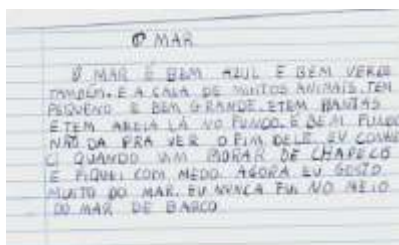 O MAR
O MAR É BEM AZUL E BEM VERDE
TAMBÉM. E A CASA DE MUITOS ANIMAIS. TEM
PEQUENO E BEM GRANDE. E TEM PLANTAS
E TEM AREIA LÁ NO FUNDO. E BEM FUNDO
NÃO DA PRA VER O FIM DELE. EU CONHE
CI QUANDO VIM MORAR DE CHAPECÓ
E FIQUEI COM MEDO. AGORA EU GOSTO
MUITO DO MAR. EU NUNCA FUI NO MEIO
DO MAR DE BARCO